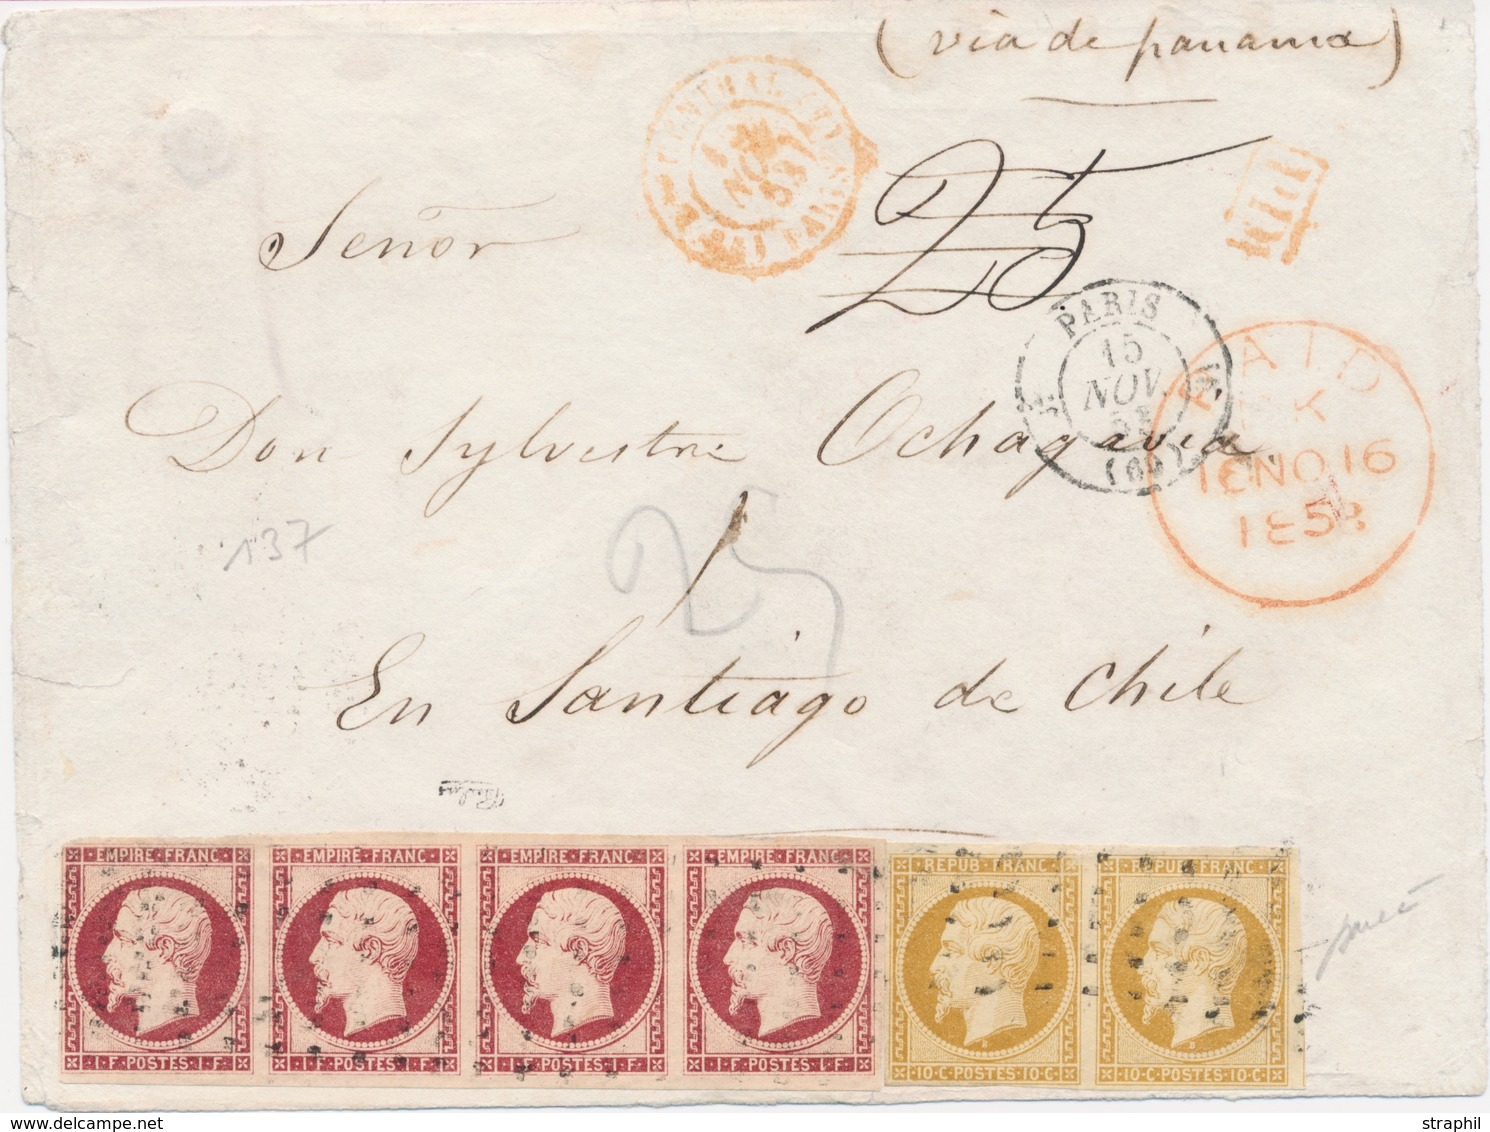 (via de panama)
25
Señor
PARIS
15
NOV.
(60)
PAID
16 NO 16
1853
Don Sylvestre Ochagavia
137
25
En Santiago de Chile
EMPIRE FRANC EMPIRE FRANC EMPIRE FRANC EMPIRE FRANC REPUB FRANC REPUB FRANC
1 F POSTES 1 F 1 F POSTES 1 F 1 F POSTES 1 F 1 F POSTES 1 F 10 C POSTES 10 C 10 C POSTES 10 C
www.delcampe.net
straphil